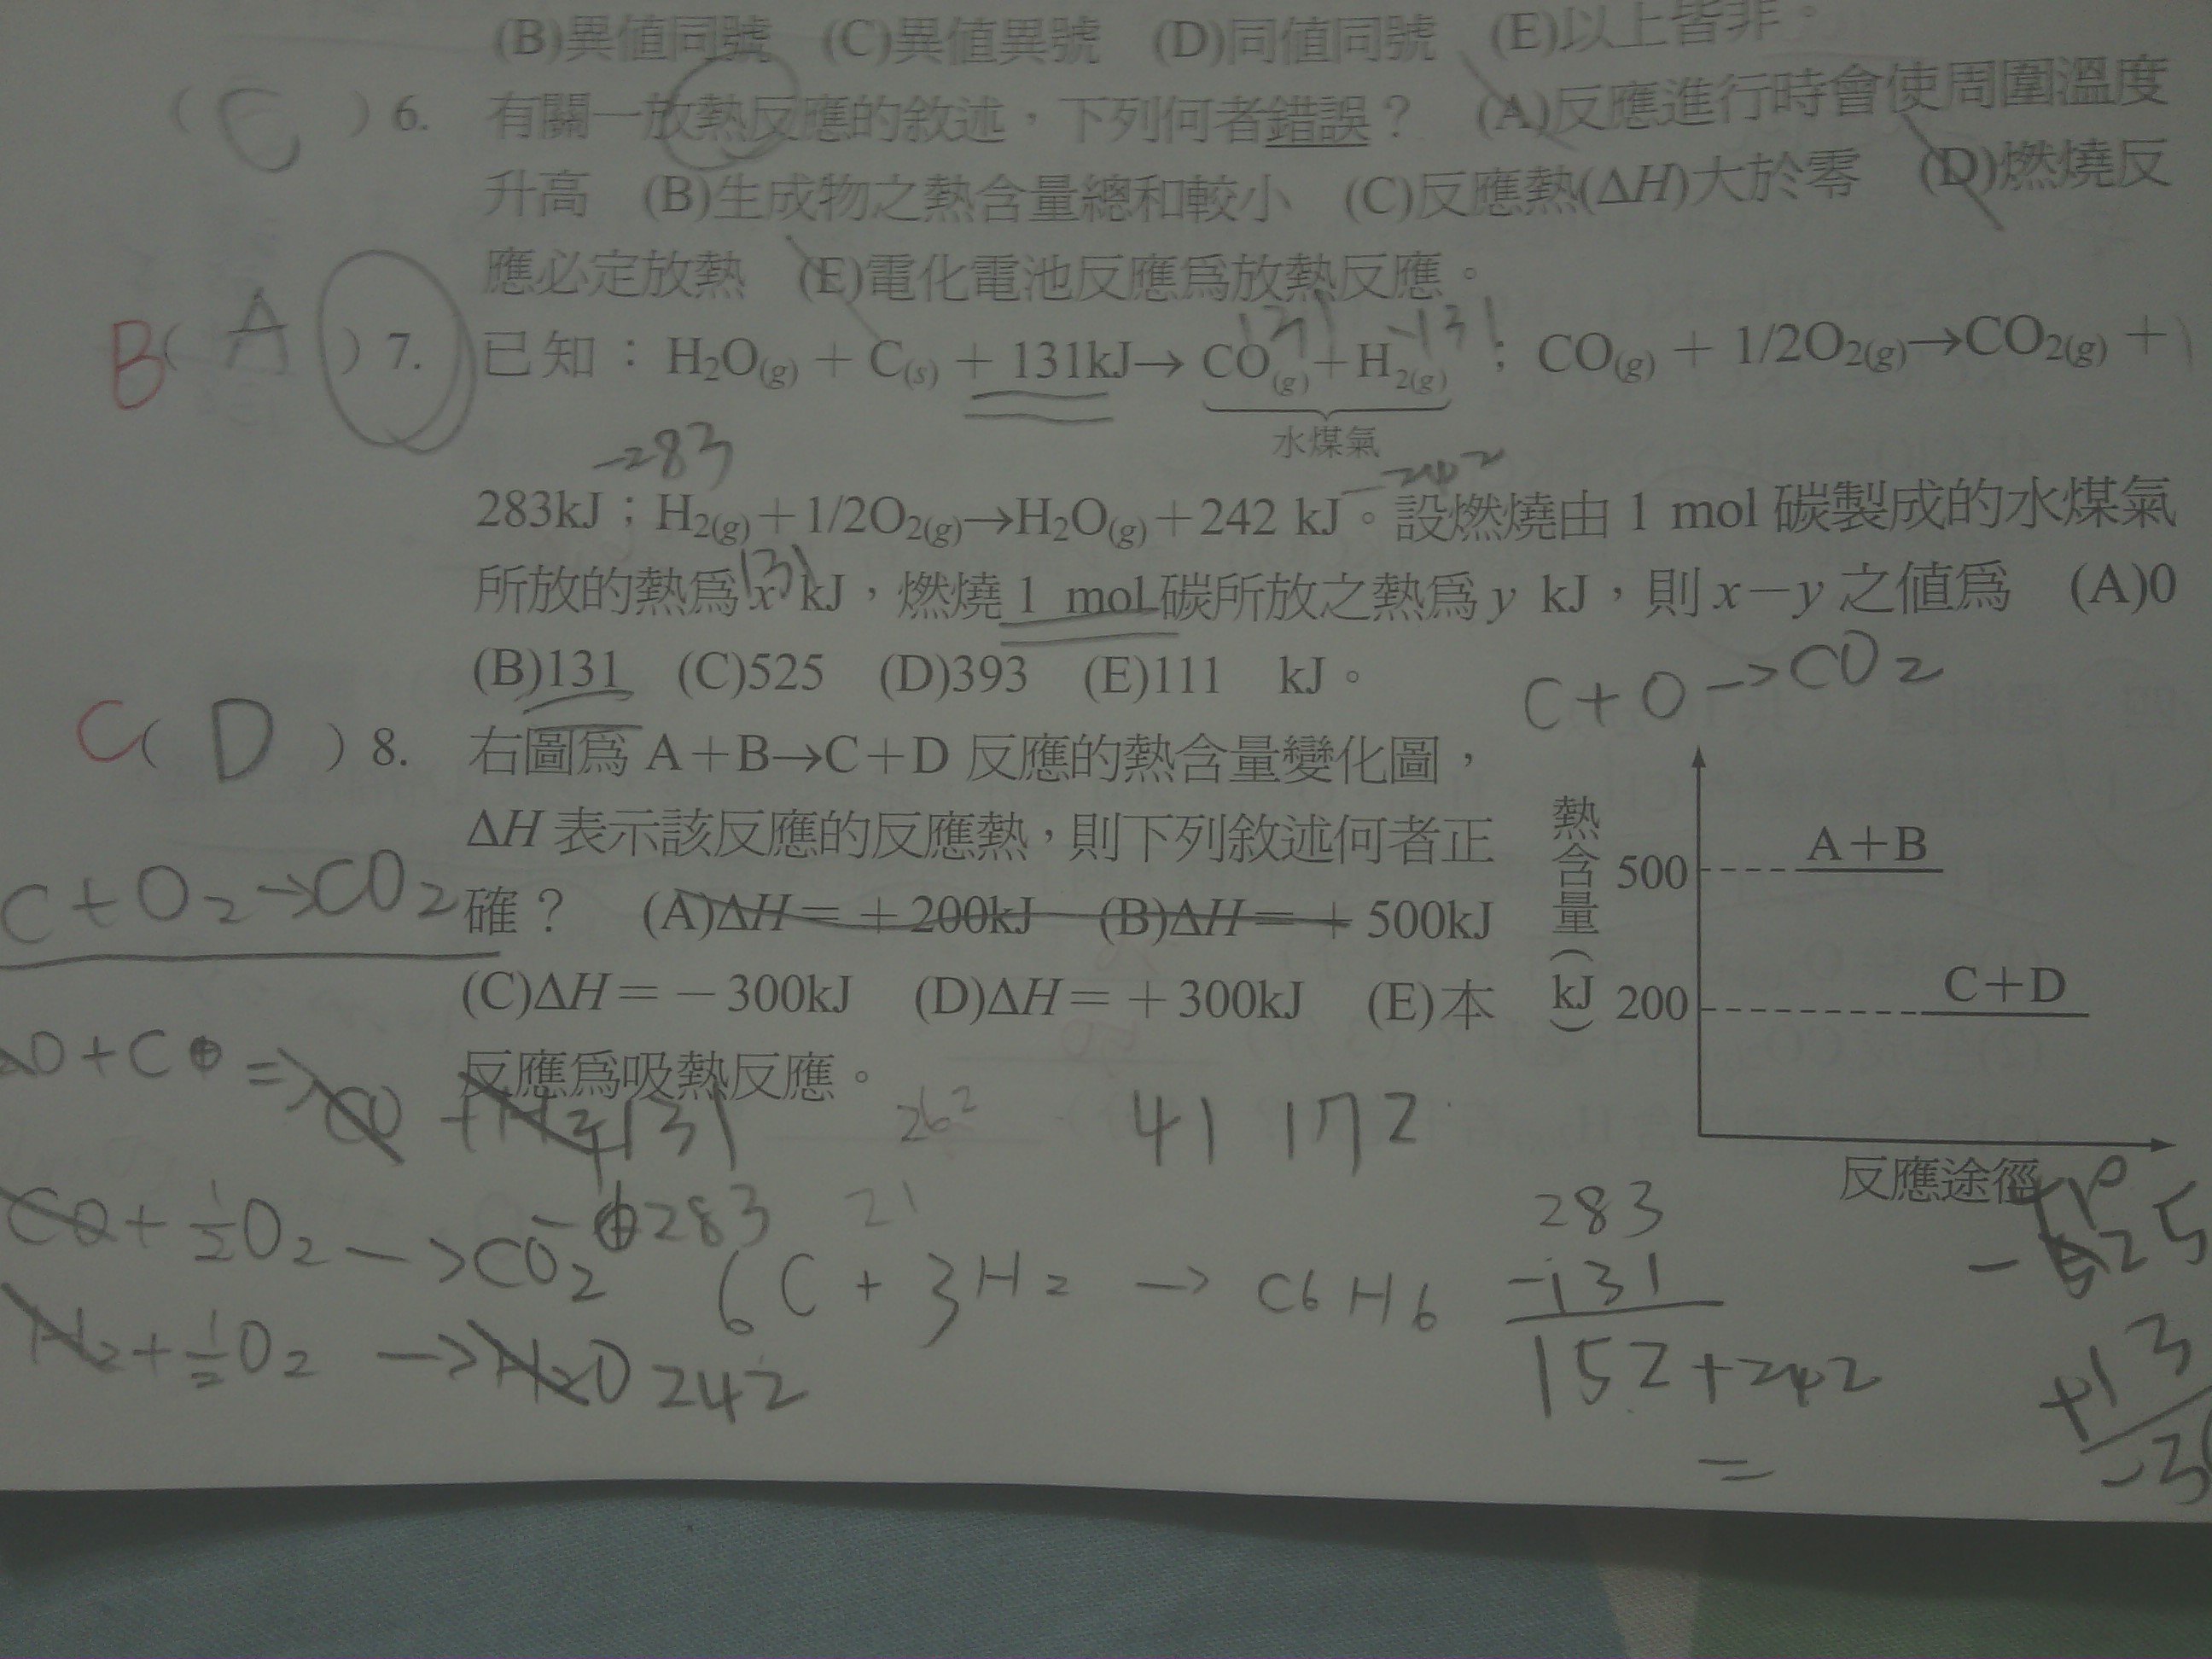 (B)異值同號 (C)異值異號 (D)同值同號 (E)以上皆非。
( C ) 6. 有關一放熱反應的敘述,下列何者錯誤? (A)反應進行時會使周圍溫度
升高 (B)生成物之熱含量總和較小 (C)反應熱(ΔH)大於零 (D)燃燒反
應必定放熱 (E)電化電池反應為放熱反應。
131 -131
B( A ) 7. 已知:H₂O(g) + C(s) + 131kJ→ CO(g)+H₂(g) ; CO(g) + 1/2O₂(g)→CO₂(g) +
水煤氣
-283 -242
283kJ;H₂(g)+1/2O₂(g)→H₂O(g)+242 kJ。設燃燒由 1 mol 碳製成的水煤氣
131
所放的熱為 x kJ,燃燒 1 mol 碳所放之熱為 y kJ,則 x-y 之值為 (A)0
(B)131 (C)525 (D)393 (E)111 kJ。
C+O→CO₂
C( D ) 8. 右圖為 A+B→C+D 反應的熱含量變化圖,
ΔH 表示該反應的反應熱,則下列敘述何者正
確? (A)ΔH=+200kJ (B)ΔH=+500kJ
(C)ΔH=-300kJ (D)ΔH=+300kJ (E)本
反應為吸熱反應。
熱含量(kJ)
500 A+B
200 C+D
反應途徑
C+O₂→CO₂
O+C => CO + H₂+131
262
41 172
CO+½O₂→CO₂ -283
21
H₂+½O₂→H₂O 242
6C+3H₂→C6H6
283
-131
152+242
=
-525
+13
-3